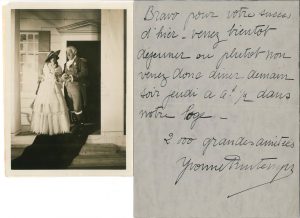 Bravo pour votre succès
d'hier - venez bientôt
déjeuner ou plutôt non
venez donc diner demain
soir jeudi à 9h ½ dans
notre loge -
2 000 grandes amitiés
Yvonne Printemps